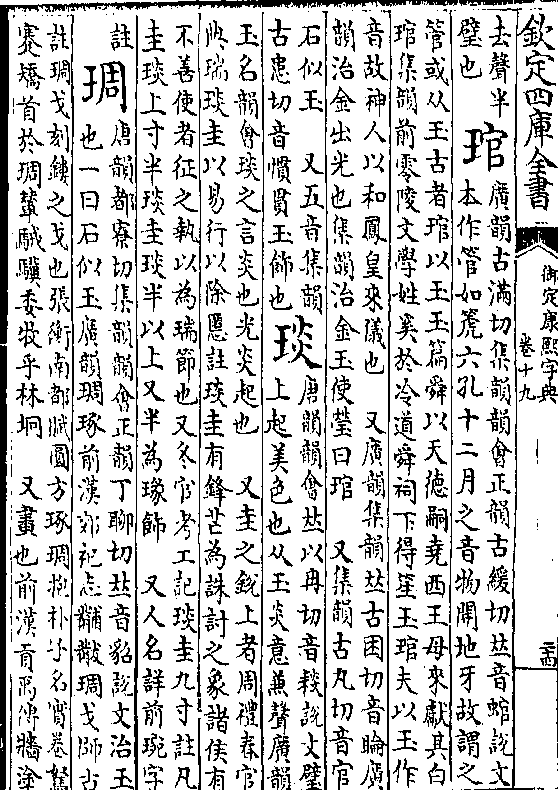 欽定四庫全書
御定康熙字典
卷十九
去聲半
璧也
琯
廣韻古滿切集韻韻會正韻古緩切𠀤音䗆說文
本作管如箎六孔十二月之音物開地牙故謂之
管或从玉古者琯以玉玉篇舜以天德嗣堯西王母來獻其白
琯集韻前零陵文學姓奚於泠道舜祠下得笙玉琯夫以玉作
音故神人以和鳳皇來儀也 又廣韻集韻𠀤古困切音睔廣
韻治金出光也集韻治金玉使瑩曰琯 又集韻古凡切音官
石似玉 又五音集韻
古患切音慣貫玉飾也
琰
唐韻韻會𠀤以冉切音棪說文璧
上起美色也从玉炎意兼聲廣韻
玉名韻會琰之言炎也光炎起也 又圭之銳上者周禮春官
典瑞琰圭以易行以除慝註琰圭有鋒芒為誅討之象諸侯有
不善使者征之執以為瑞節也又冬官考工記琰圭九寸註凡
圭琰上寸半琰圭琰半以上又半為瑑飾 又人名詳前琬字
註
琱
唐韻都寮切集韻韻會正韻丁聊切𠀤音貂說文治玉
也一曰石似玉廣韻琱琢前漢郊祀志黼黻琱戈師古
註琱戈刻鏤之戈也張衡南都賦圓方琢琱抱朴子名實卷駑
蹇矯首於琱輦駥驥委牧乎林坰 又畫也前漢貢禹傳牆塗